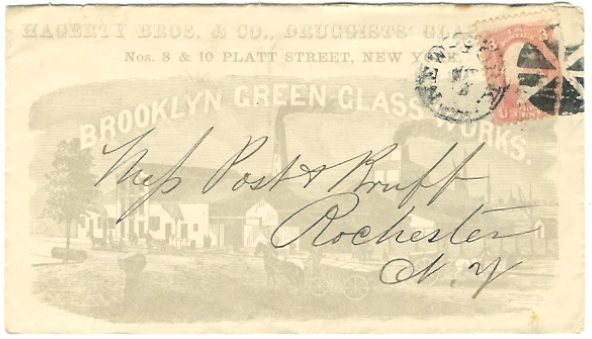 HAGERTY BROS. & CO., DRUGGISTS' GLAS
Nos. 8 & 10 PLATT STREET, NEW YORK.
NEW-YORK
BROOKLYN GREEN GLASS WORKS.
Mess Post & Bruff
Rochester
N. Y